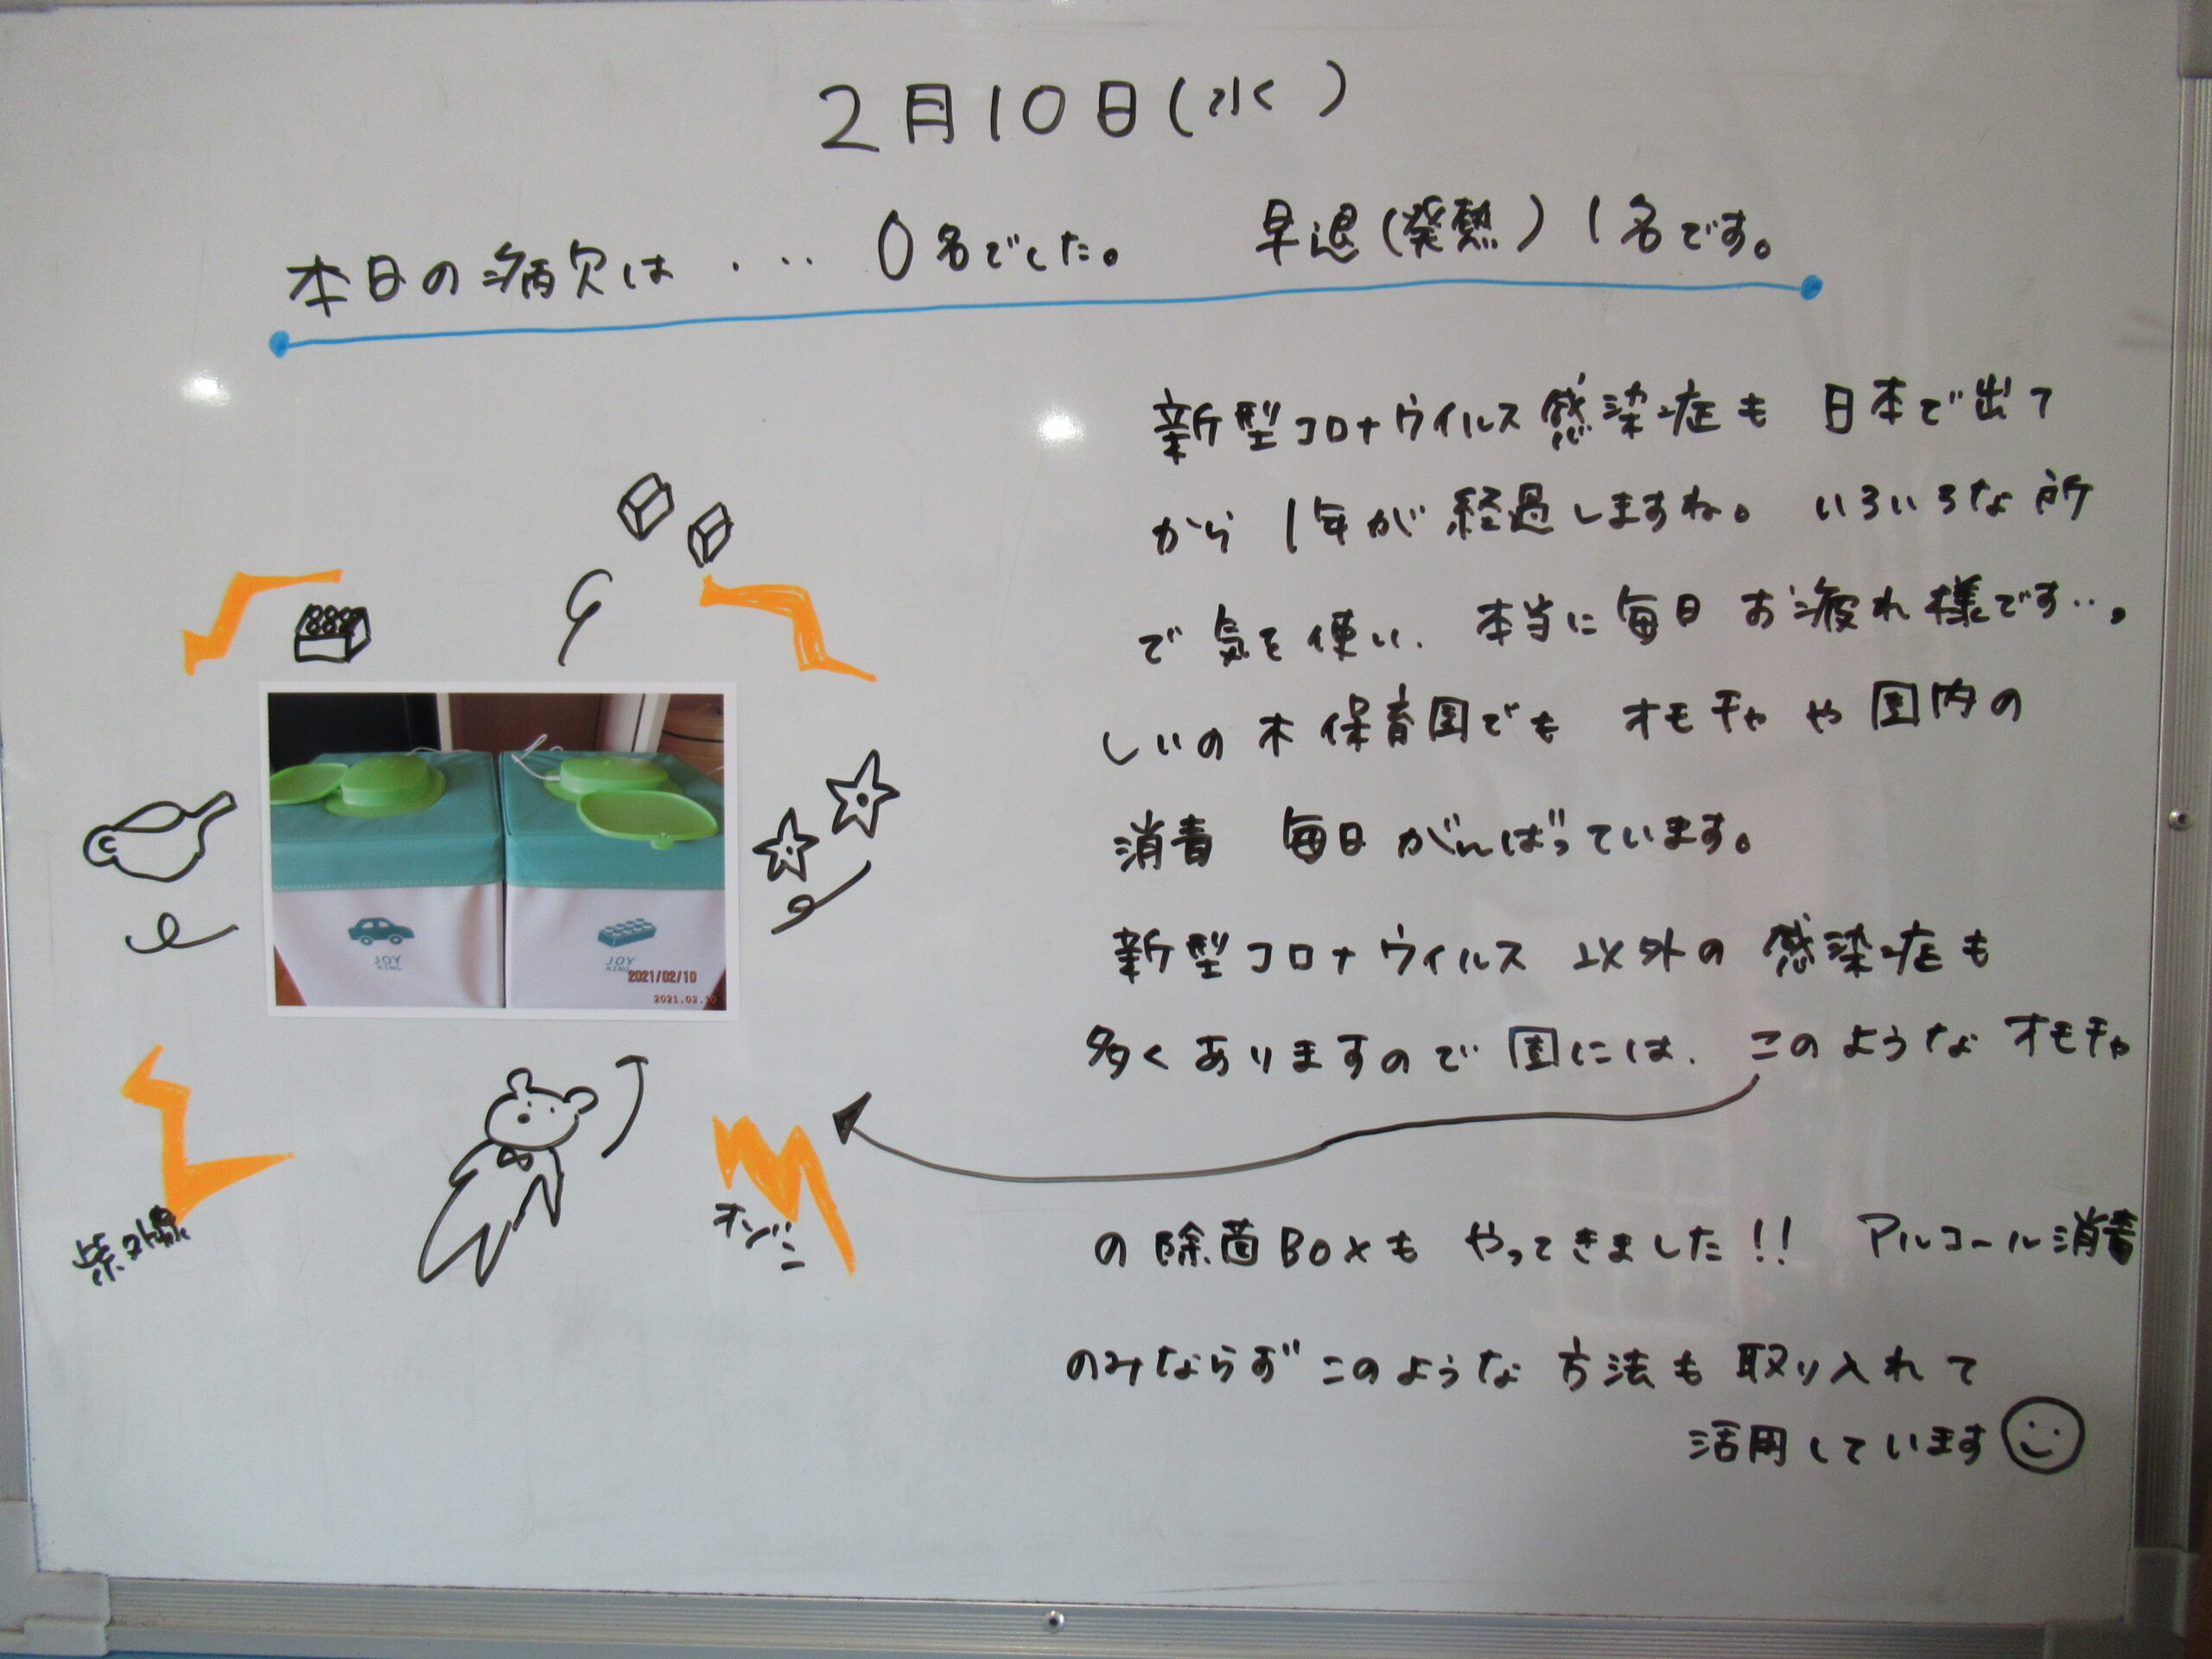 2月10日(水)
本日の病欠は・・・ 0名でした。 早退(発熱)1名です。
新型コロナウイルス感染症も 日本で出て
から 1年が経過しますね。 いろいろな所
で気を使い、本当に毎日お疲れ様です…。
しいの木保育園でも オモチャや園内の
消毒 毎日がんばっています。
新型コロナウィルス以外の感染症も
多くありますので園には、このようなオモチャ
の除菌Boxもやってきました!! アルコール消毒
のみならず このような方法も取り入れて
活用しています
JOY
XING
JOY
XING
2021/02/10
2021.02.10
紫外線
オゾン